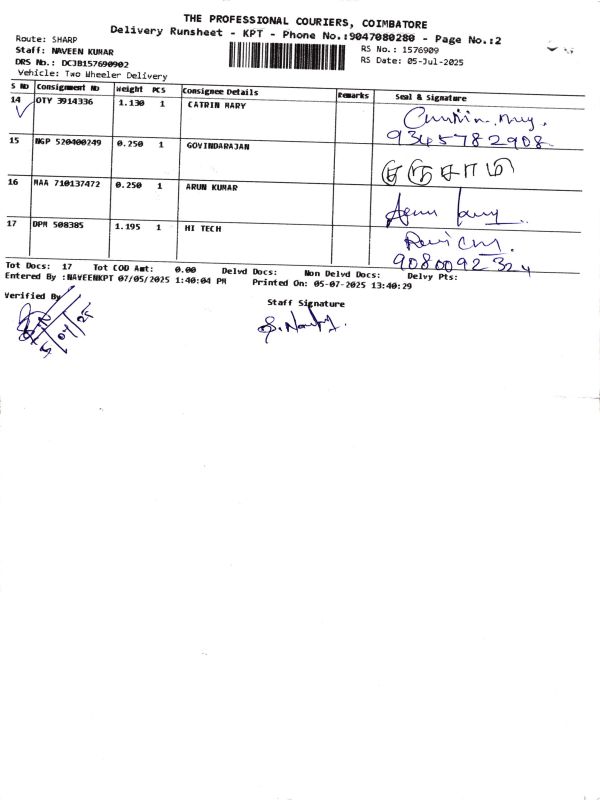 THE PROFESSIONAL COURIERS, COIMBATORE
Delivery Runsheet - KPT - Phone No.:9047080280 - Page No.:2
Route: SHARP
Staff: NAVEEN KUMAR
DRS No.: DCJB157690902
Vehicle: Two Wheeler Delivery
RS No.: 1576909
RS Date: 05-Jul-2025
S No Consignment No Weight PCS Consignee Details Remarks Seal & Signature
14 OTY 3914336 1.130 1 CATRIN MARY
9345782908
15 NGP 520400249 0.250 1 GOVINDARAJAN
16 MAA 710137472 0.250 1 ARUN KUMAR Arun
17 DPM 508385 1.195 1 HI TECH
9080092324
Tot Docs: 17 Tot COD Amt: 0.00 Delvd Docs: Non Delvd Docs: Delvy Pts:
Entered By :NAVEENKPT 07/05/2025 1:40:04 PM Printed On: 05-07-2025 13:40:29
Verified By
Staff Signature